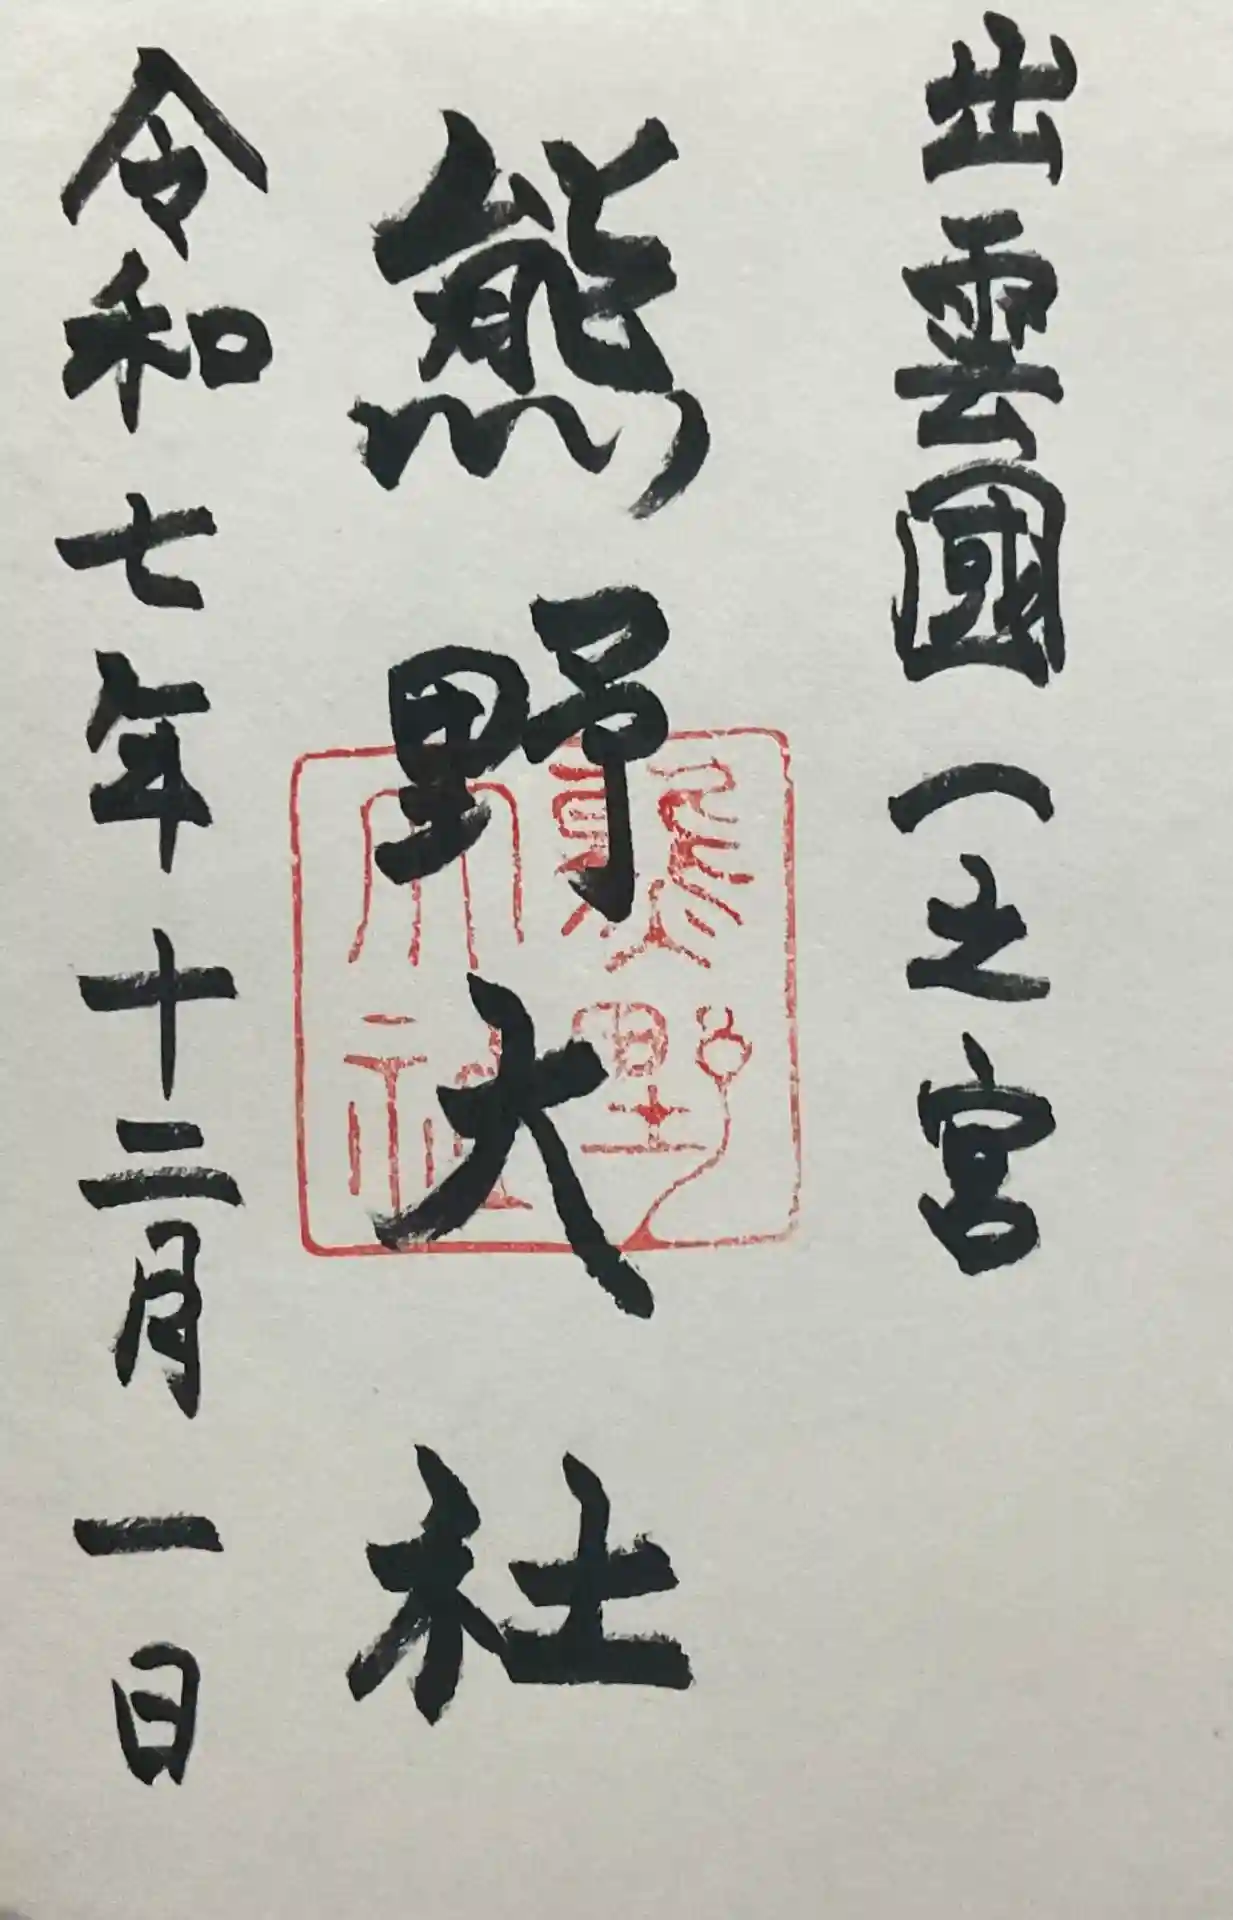 出雲國一之宮
熊野大社
熊野大社
令和七年十二月一日